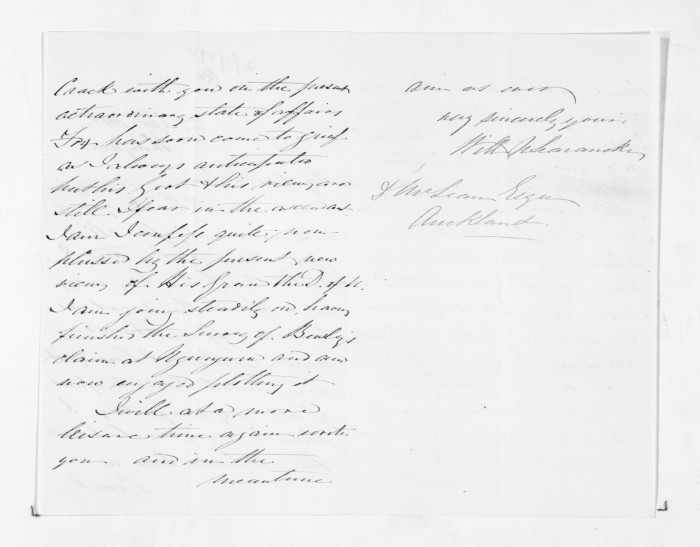 Crack with you on the present
extraordinary state of affairs
Fox has soon come to grief
as I always anticipated
but his Govt & his views are
still I fear in the ascendant
I am I confess quite non-
plussed by the present new
views of His Grace the D. of N.
I am going steadily on having
finished the Survey of Beasly's
claim at and am
now engaged plotting it
I will at a more
leisure time again write
you and in the
meantime
aim as ever
very sincerely yours
Will
D McLean Esqre
Auckland.